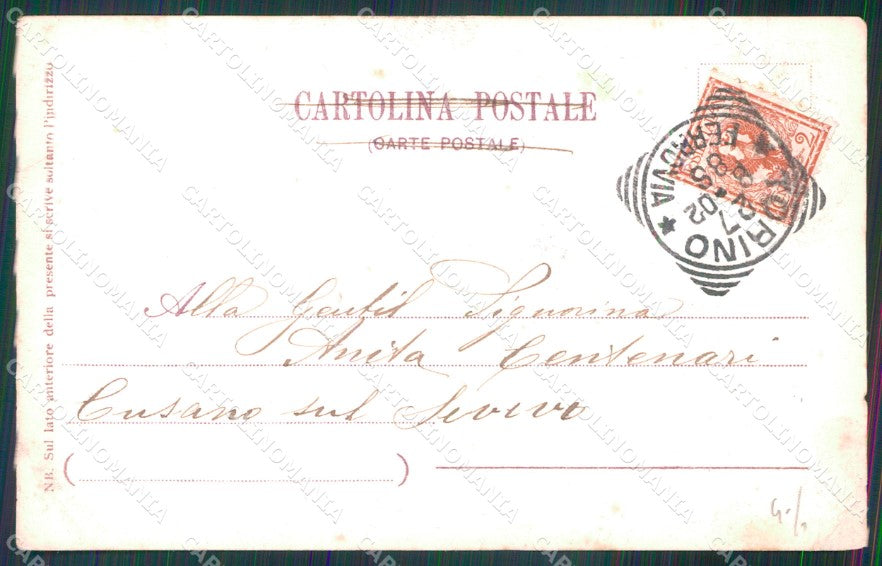 CARTOLINA POSTALE
(CARTE POSTALE)
TORINO
FERROVIA
Alla Gentil Signorina
Anita Centenari
Cusano sul Seveso
N.B. Sul lato anteriore della presente si scrive soltanto l'indirizzo
CARTOLINOMANIA